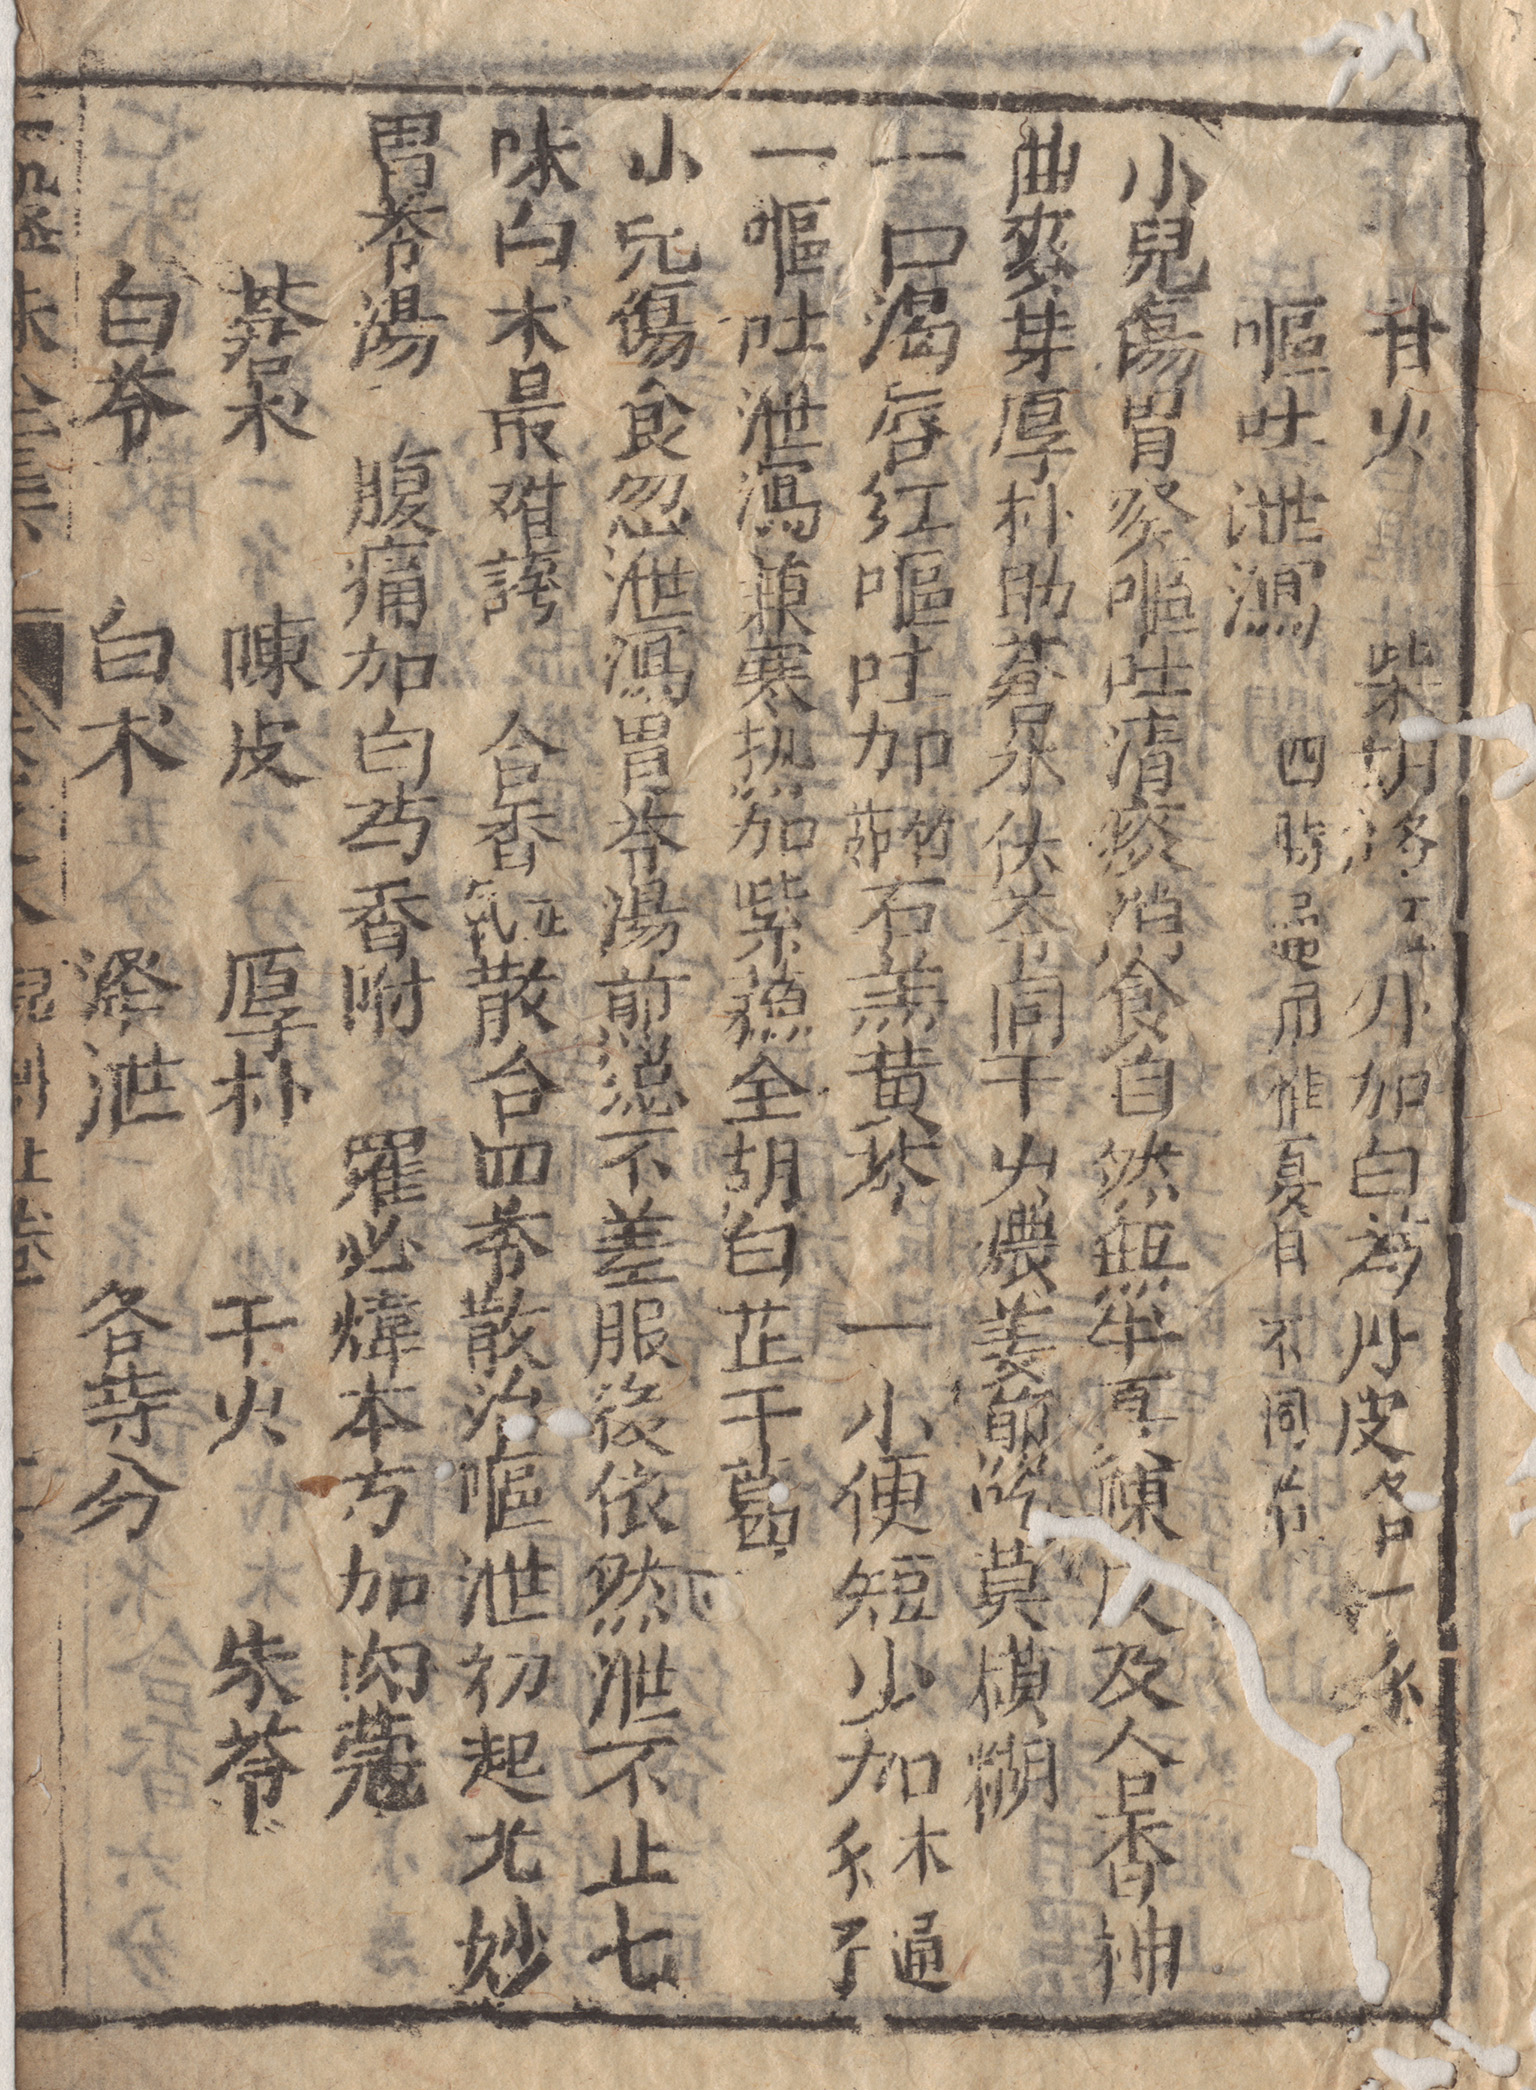 甘火 柴胡各 分加白芍丹皮各一
嘔吐泄瀉 四時品用惟夏月不同治
小兒傷胃癸嘔吐清痰消食自然無半夏陳皮及合香神
曲麥芽厚朴助蒼朮伏苓同干火煨姜前 莫模糊
一口渴唇紅嘔吐加竹茹石羔黄芩 一小便短少加木通 子
一嘔吐泄瀉兼寒热加紫蘓全胡白芷干葛
小児傷食忽泄瀉胃苓湯前 不差服後依然泄不止七
味白术最难誇 合香正氣散合四苓散治嘔泄初起尤妙
胃苓湯 腹痛加白芍香附 羅必煒本方加肉蔻
蒼朮 陳皮 厚朴 干火 朱苓
白苓 白术 澤泄 各等分